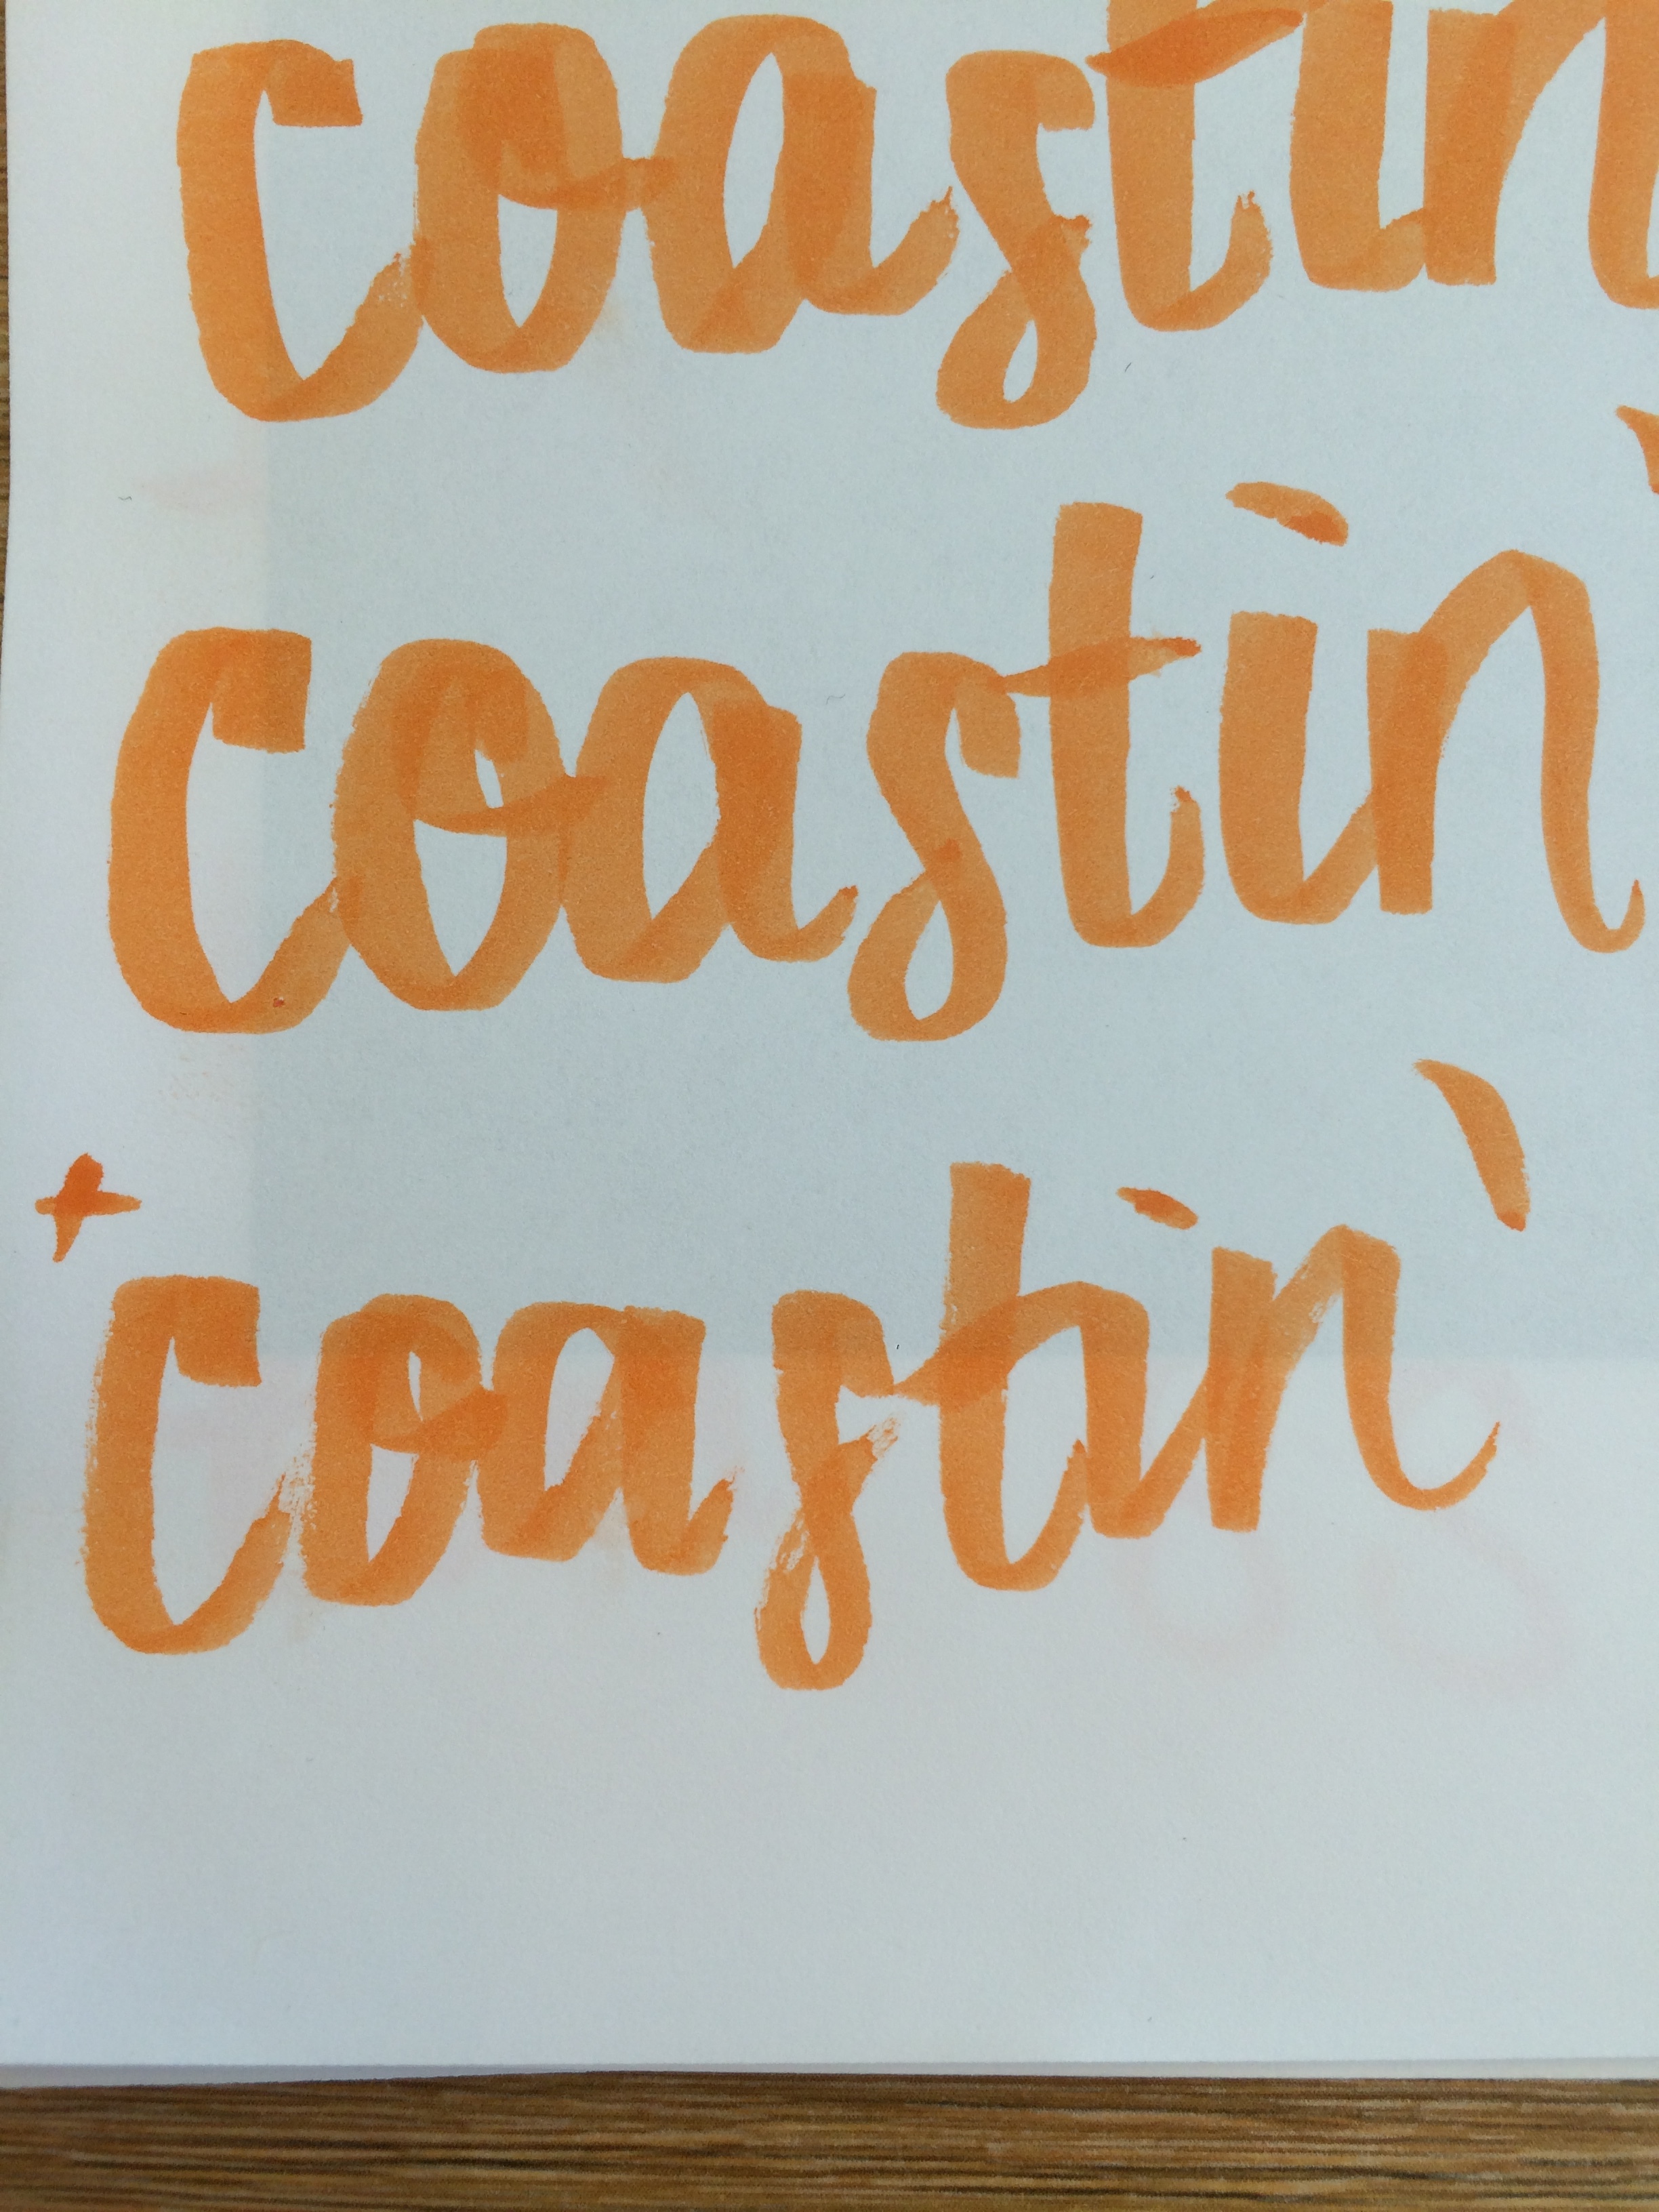 coastin
coastin'
+ coastin'